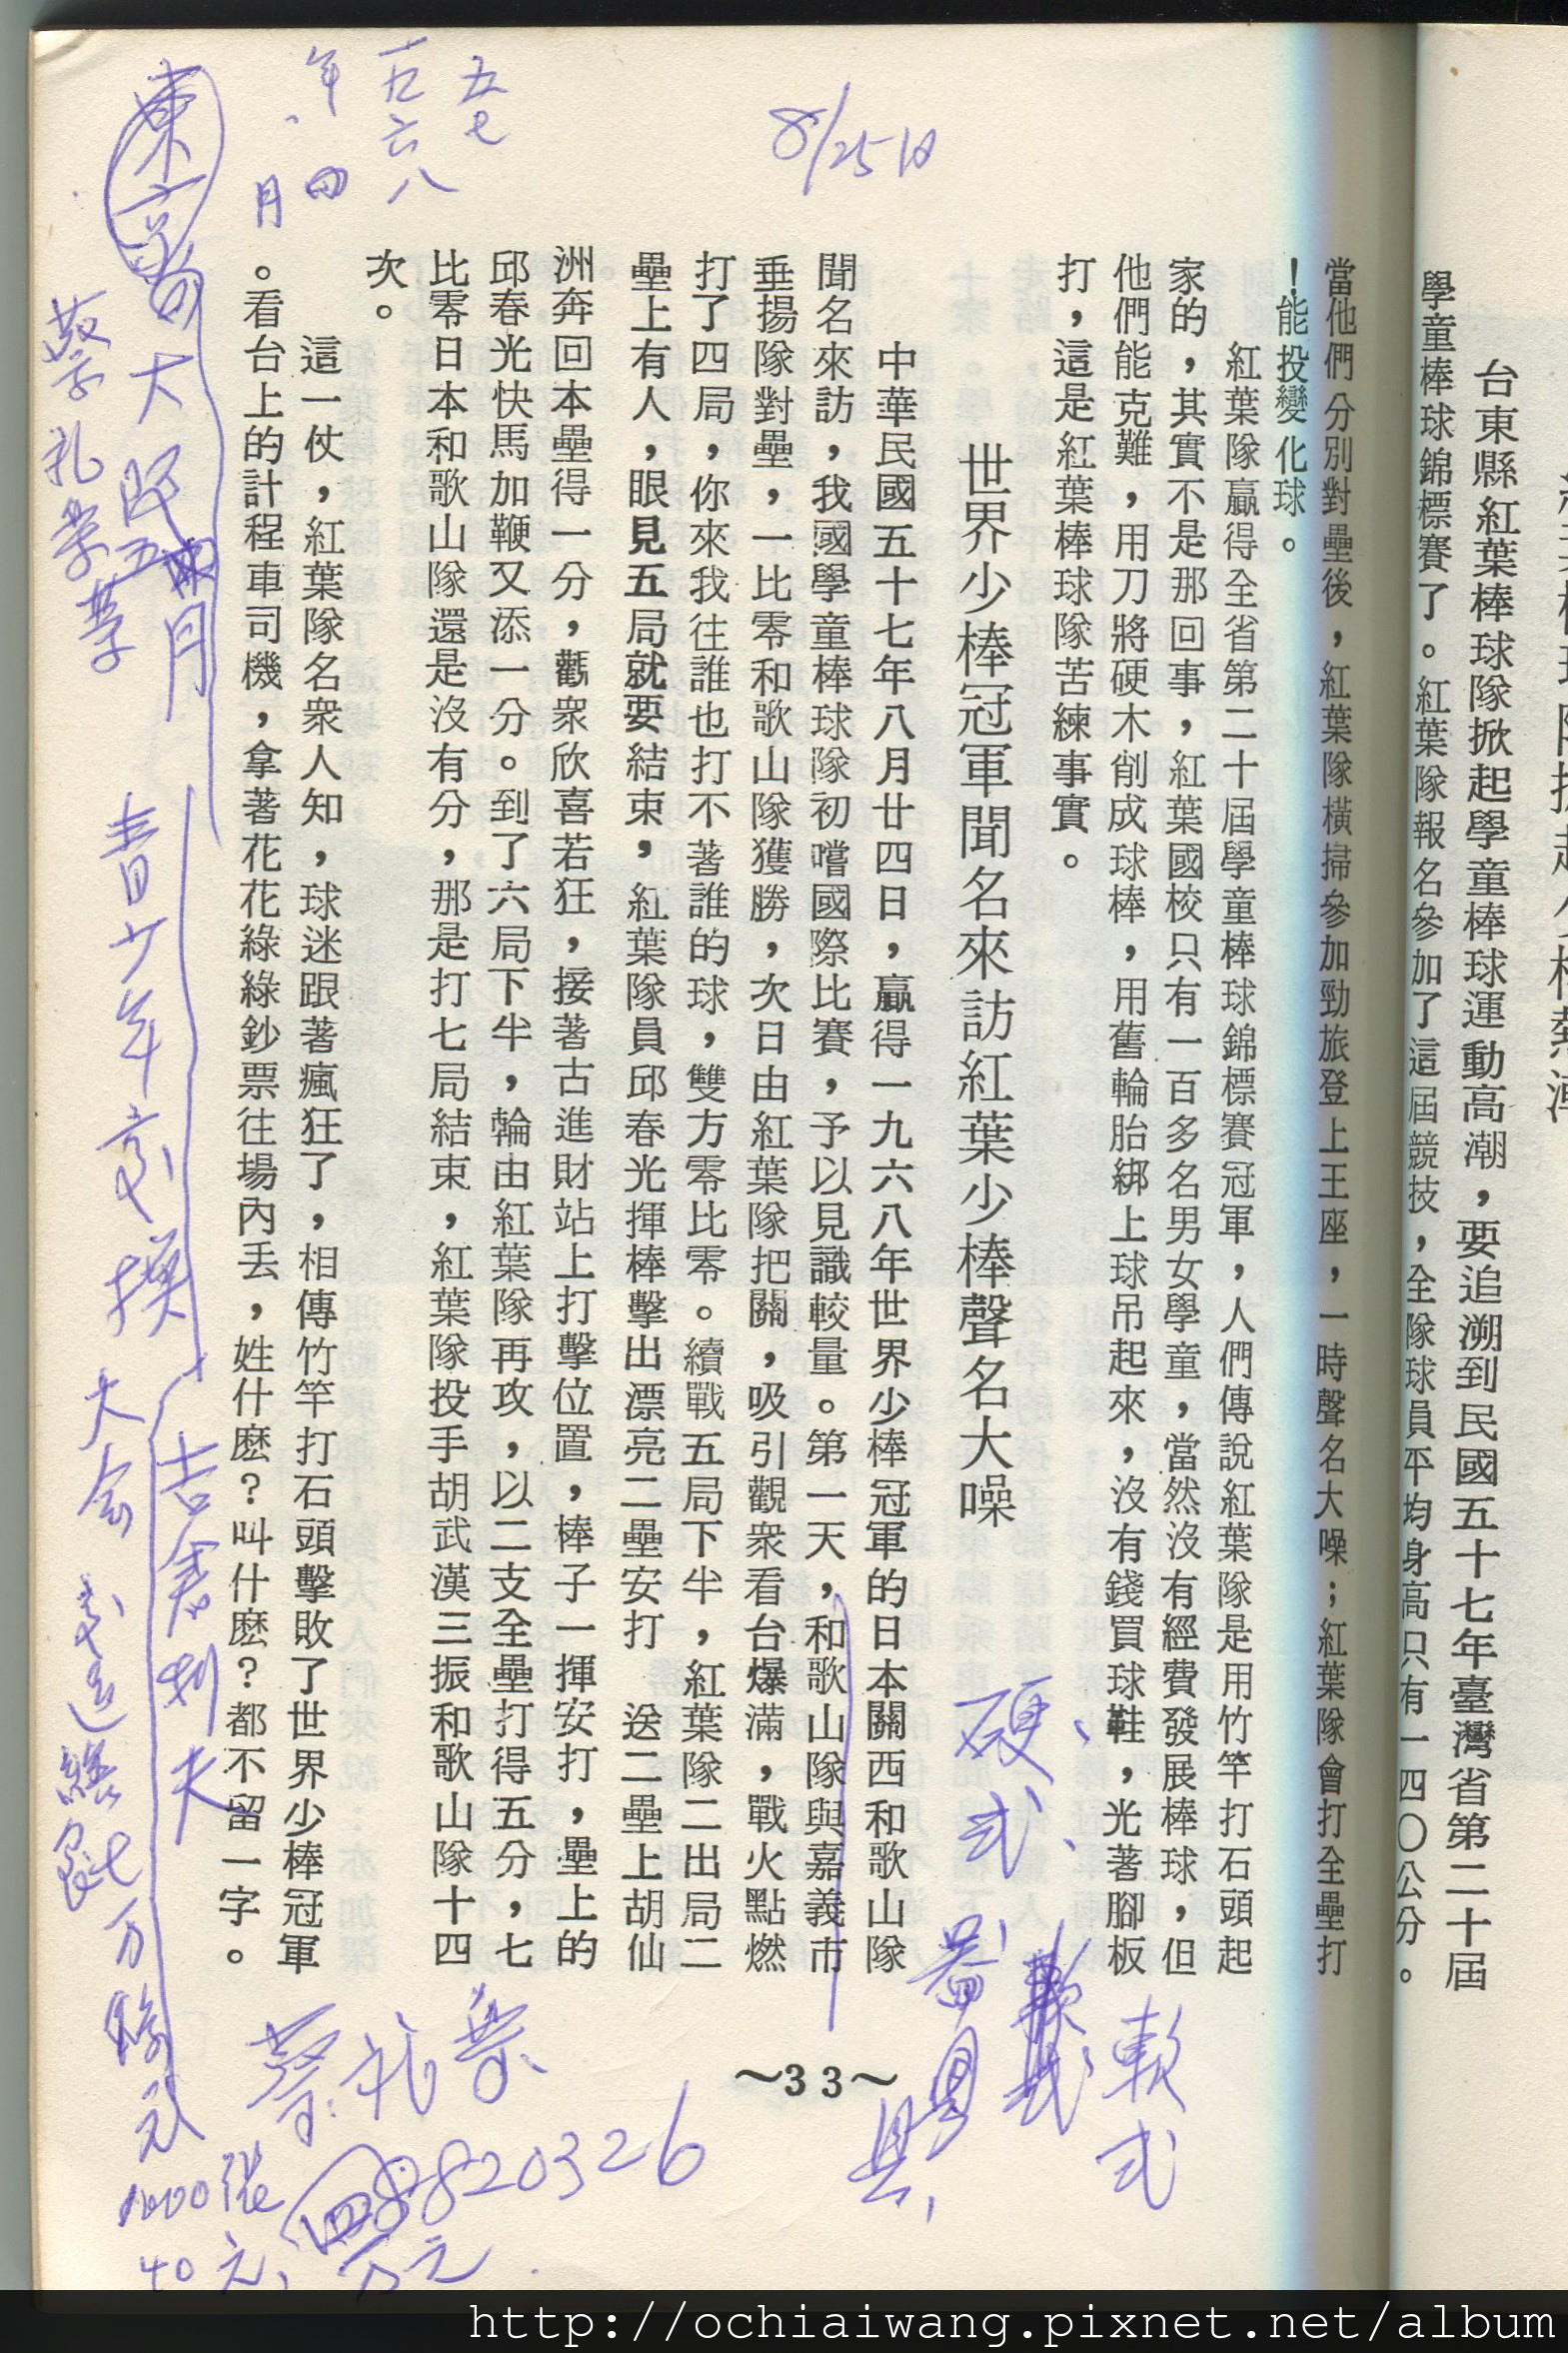 台東縣紅葉棒球隊掀起學童棒球運動高潮，要追溯到民國五十七年臺灣省第二十屆
學童棒球錦標賽了。紅葉隊報名參加了這屆競技，全隊球員平均身高只有一四〇公分。
當他們分別對壘後，紅葉隊橫掃參加勁旅登上王座，一時聲名大噪；紅葉隊會打全壘打
！能投變化球。
紅葉隊贏得全省第二十屆學童棒球錦標賽冠軍，人們傳說紅葉隊是用竹竿打石頭起
家的，其實不是那回事，紅葉國校只有一百多名男女學童，當然沒有經費發展棒球，但
他們能克難，用刀將硬木削成球棒，用舊輪胎綁上球吊起來，沒有錢買球鞋，光著腳板
打，這是紅葉棒球隊苦練事實。
世界少棒冠軍聞名來訪紅葉少棒聲名大噪
中華民國五十七年八月廿四日，贏得一九六八年世界少棒冠軍的日本關西和歌山隊
聞名來訪，我國學童棒球隊初嚐國際比賽，予以見識較量。第一天，和歌山隊與嘉義市
垂揚隊對壘，一比零和歌山隊獲勝，次日由紅葉隊把關，吸引觀眾看台爆滿，戰火點燃
打了四局，你來我往誰也打不著誰的球，雙方零比零。續戰五局下半，紅葉隊二出局二
壘上有人，眼見五局就要結束，紅葉隊員邱春光揮棒擊出漂亮二壘安打　送二壘上胡仙
洲奔回本壘得一分，觀衆欣喜若狂，接著古進財站上打擊位置，棒子一揮安打，壘上的
邱春光快馬加鞭又添一分。到了六局下半，輪由紅葉隊再攻，以二支全壘打得五分，七
比零日本和歌山隊還是沒有分，那是打七局結束，紅葉隊投手胡武漢三振和歌山隊十四
次。
這一仗，紅葉隊名衆人知，球迷跟著瘋狂了，相傳竹竿打石頭擊敗了世界少棒冠軍
。看台上的計程車司機，拿著花花綠綠鈔票往場內丟，姓什麼？叫什麼？都不留一字。
～33～
8/25日
五七
一九六八
年、四
月
硬式、
軟式
青少年交換
大会
七万
蔡礼業
8820326
1000張
40元、
四万元
http://ochiaiwang.pixnet.net/album